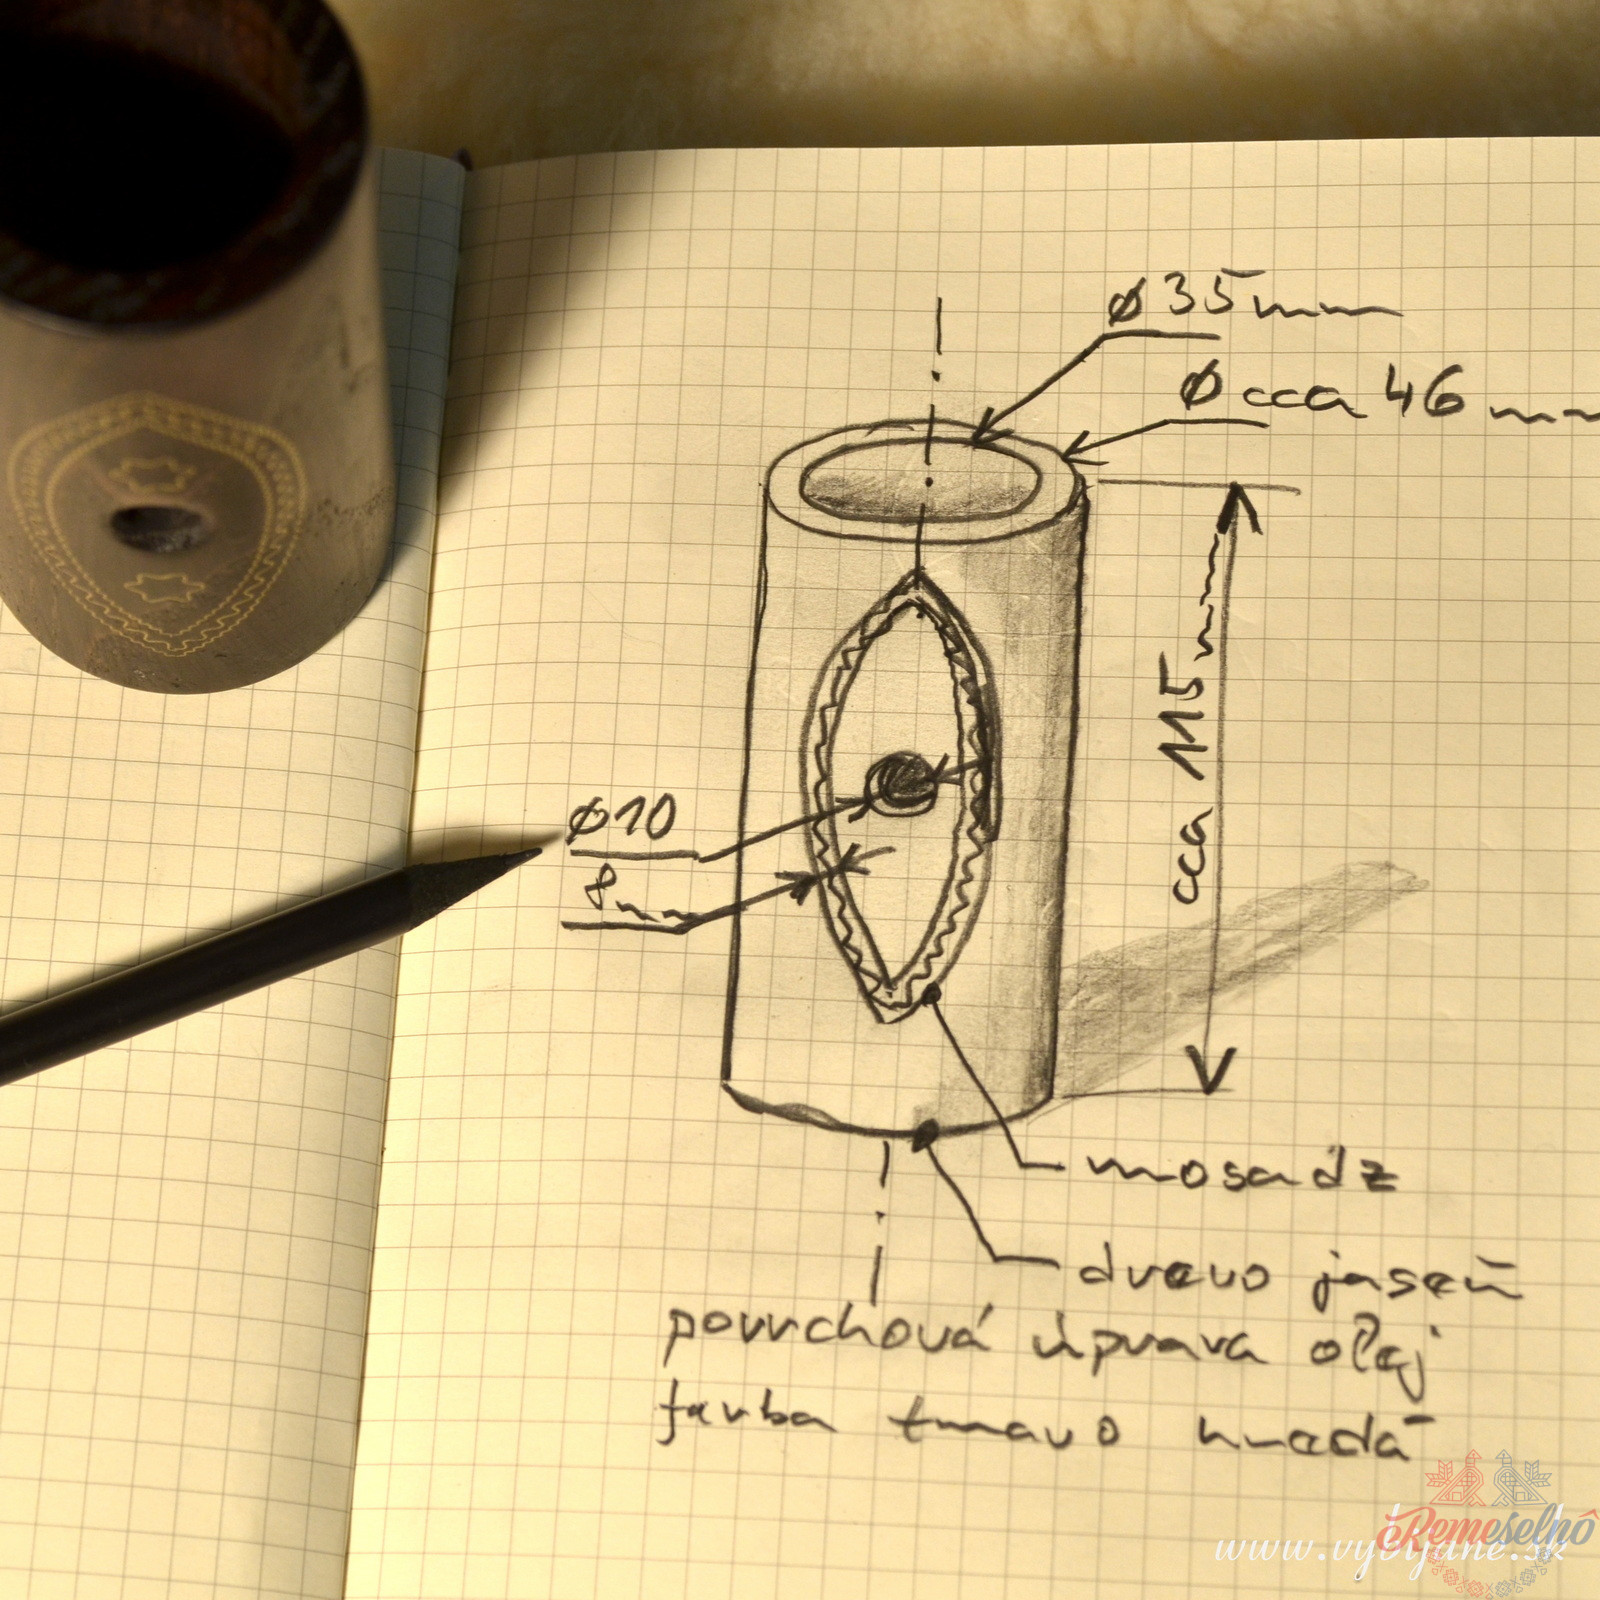 ø35mm
ø cca 46 mm
cca 115mm
ø10
8mm
mosadz
drevo jaseň
povrchová úprava olej
farba tmavo hnedá
www.vybijane.sk
eRemeselnô